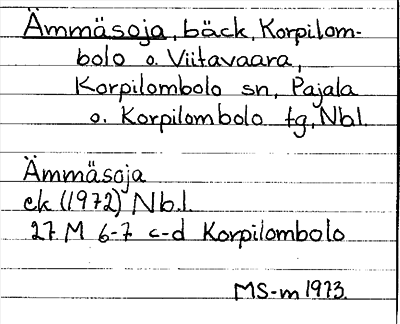 Ämmäsoja, bäck, Korpilom-
bolo o. Viitavaara,
Korpilombolo sn, Pajala
o. Korpilombolo tg, Nbl.
Ämmäsoja
ek (1972) Nbl.
27 M 6-7 c-d Korpilombolo
MS-m 1973.